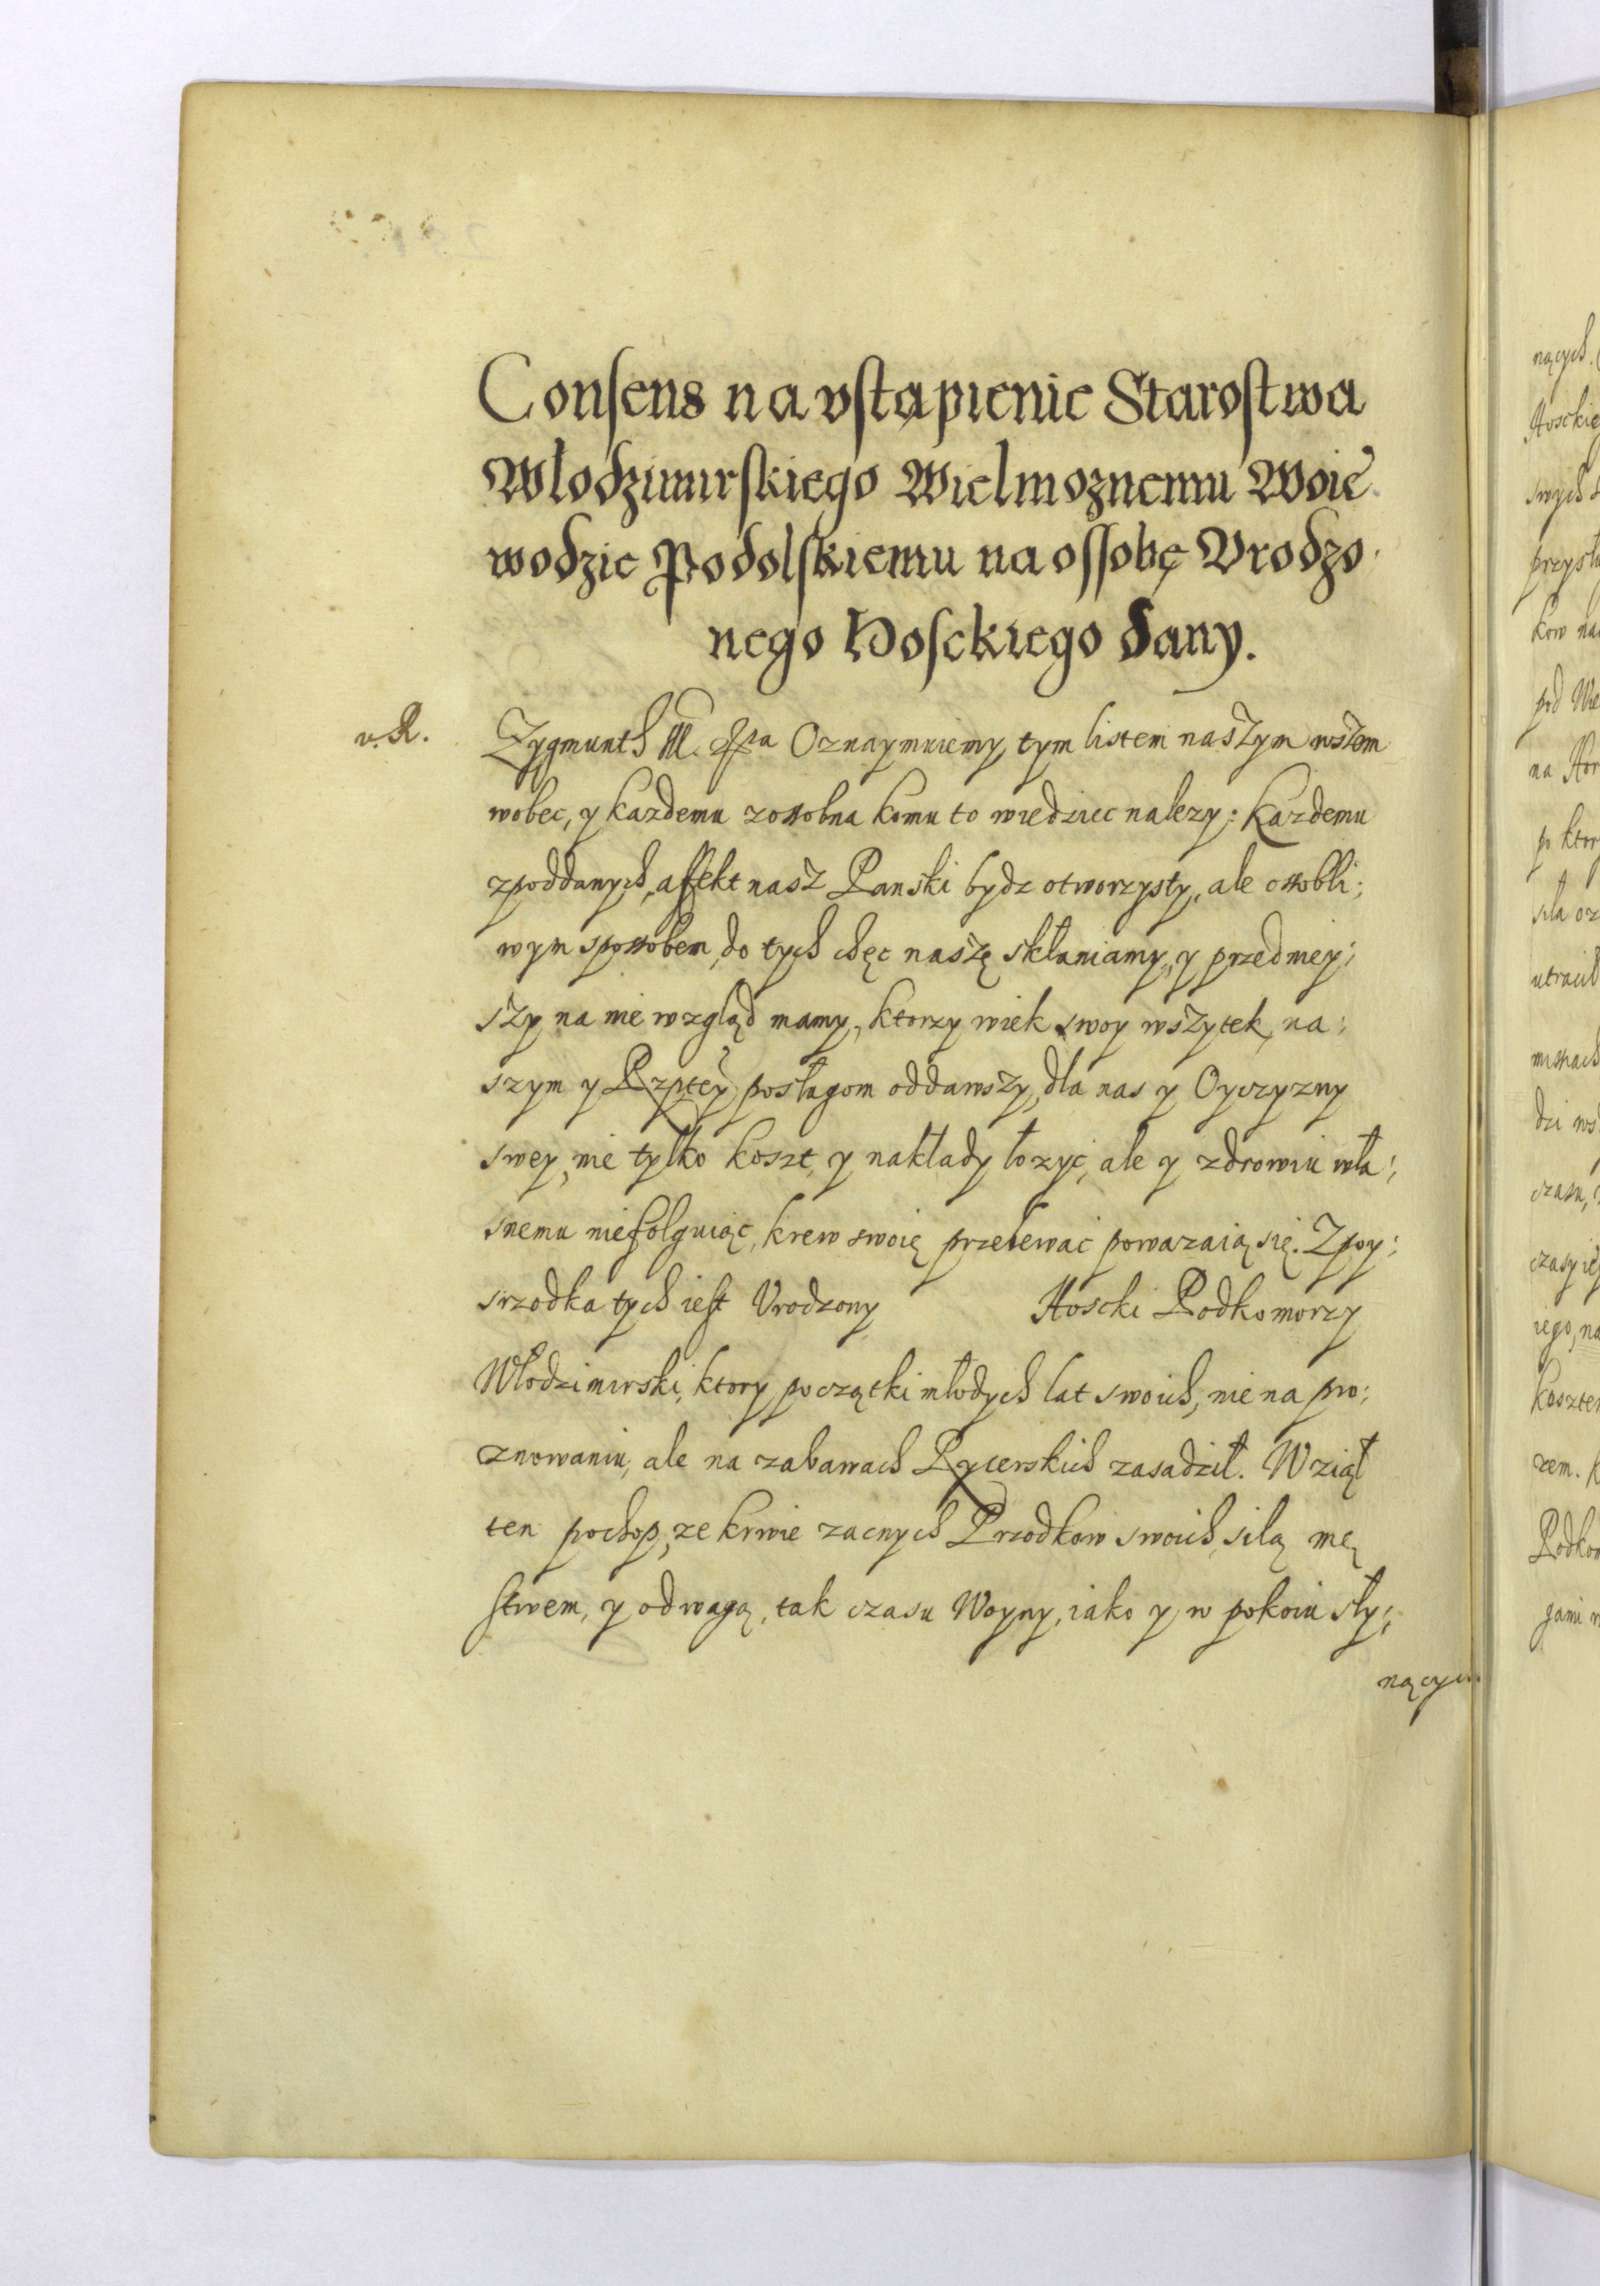 Consens na vstąpienie Starostwa
Włodzimirskiego Wielmoznemu Woie
wodzie Podolskiemu na ossobę Vrodzo
nego Hosckiego dany.
v. R.
Zygmunth III. Oznaymuiemy tym listem naszym wszem
wobec, y kazdemu zossobna komu to wiedziec nalezy: Kazdemu
zpoddanych, affekt nasz Panski bydz otworzysty, ale ossobli:
wym sposobem, do tych chęc naszę skłaniamy, y przedniey:
szy na nie wzgląd mamy, ktorzy wiek swoy wszytek, na:
szym y Rzptey posługom oddawszy, dla nas y Oyczyzny
swey, nie tylko koszt, y nakłady łozyc, ale y zdrowiu wła:
snemu niefolguiąc, krew swoię przelewac powazaią się. Zpoy:
srzodka tych iest Vrodzony Hoscki Podkomorzy
Włodzimirski, ktory początki młodych lat swoich, nie na pro:
znowaniu, ale na zabawach Rycerskich zasadził. Wziął
ten pochop, ze krwie zacnych Przodkow swoich, siłą mę
stwem, y odwagą, tak czasu Woyny, iako y w pokoiu sły:
nących
nących.
Hosckie
swych
przysłu
kow na
pod Wie
na
po ktor
siła
utracił
dzi
czasu,
czasy
iego, na
kosztem
zem.
Podkom
gami